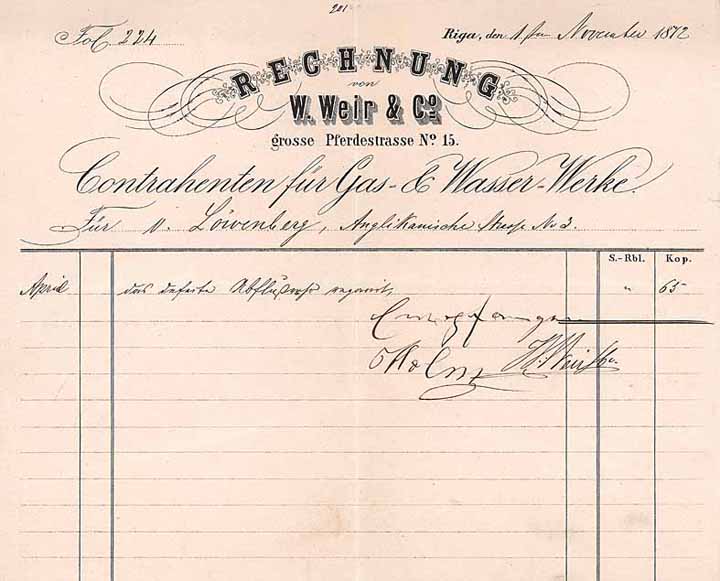 201
Fol. 224
Riga, den 1 ten November 1872
RECHNUNG
von
W. Weir & Co
grosse Pferdestrasse No. 15.
Contrahenten für Gas- & Wasser-Werke.
Für v. Löwenberg, Anglikanische Strasse No 3.
S.-Rbl. Kop.
April das defecte Abflußrohr reparirt, " 65
Empfangen
W. Weir & Co.